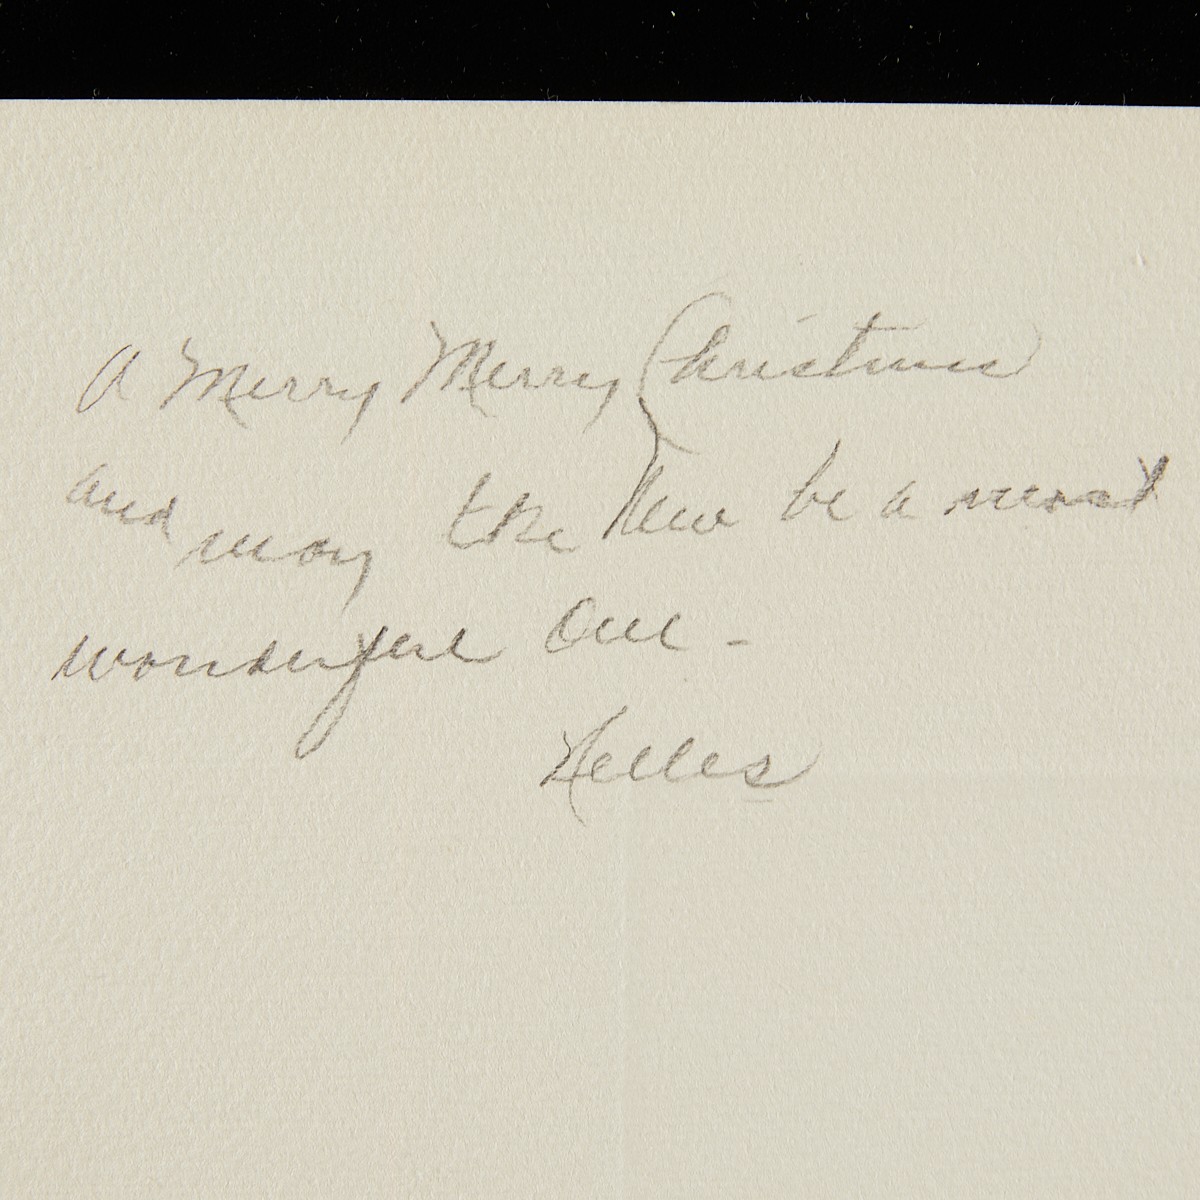 A Merry Merry Christmas
and may the New be a most
wonderful one -